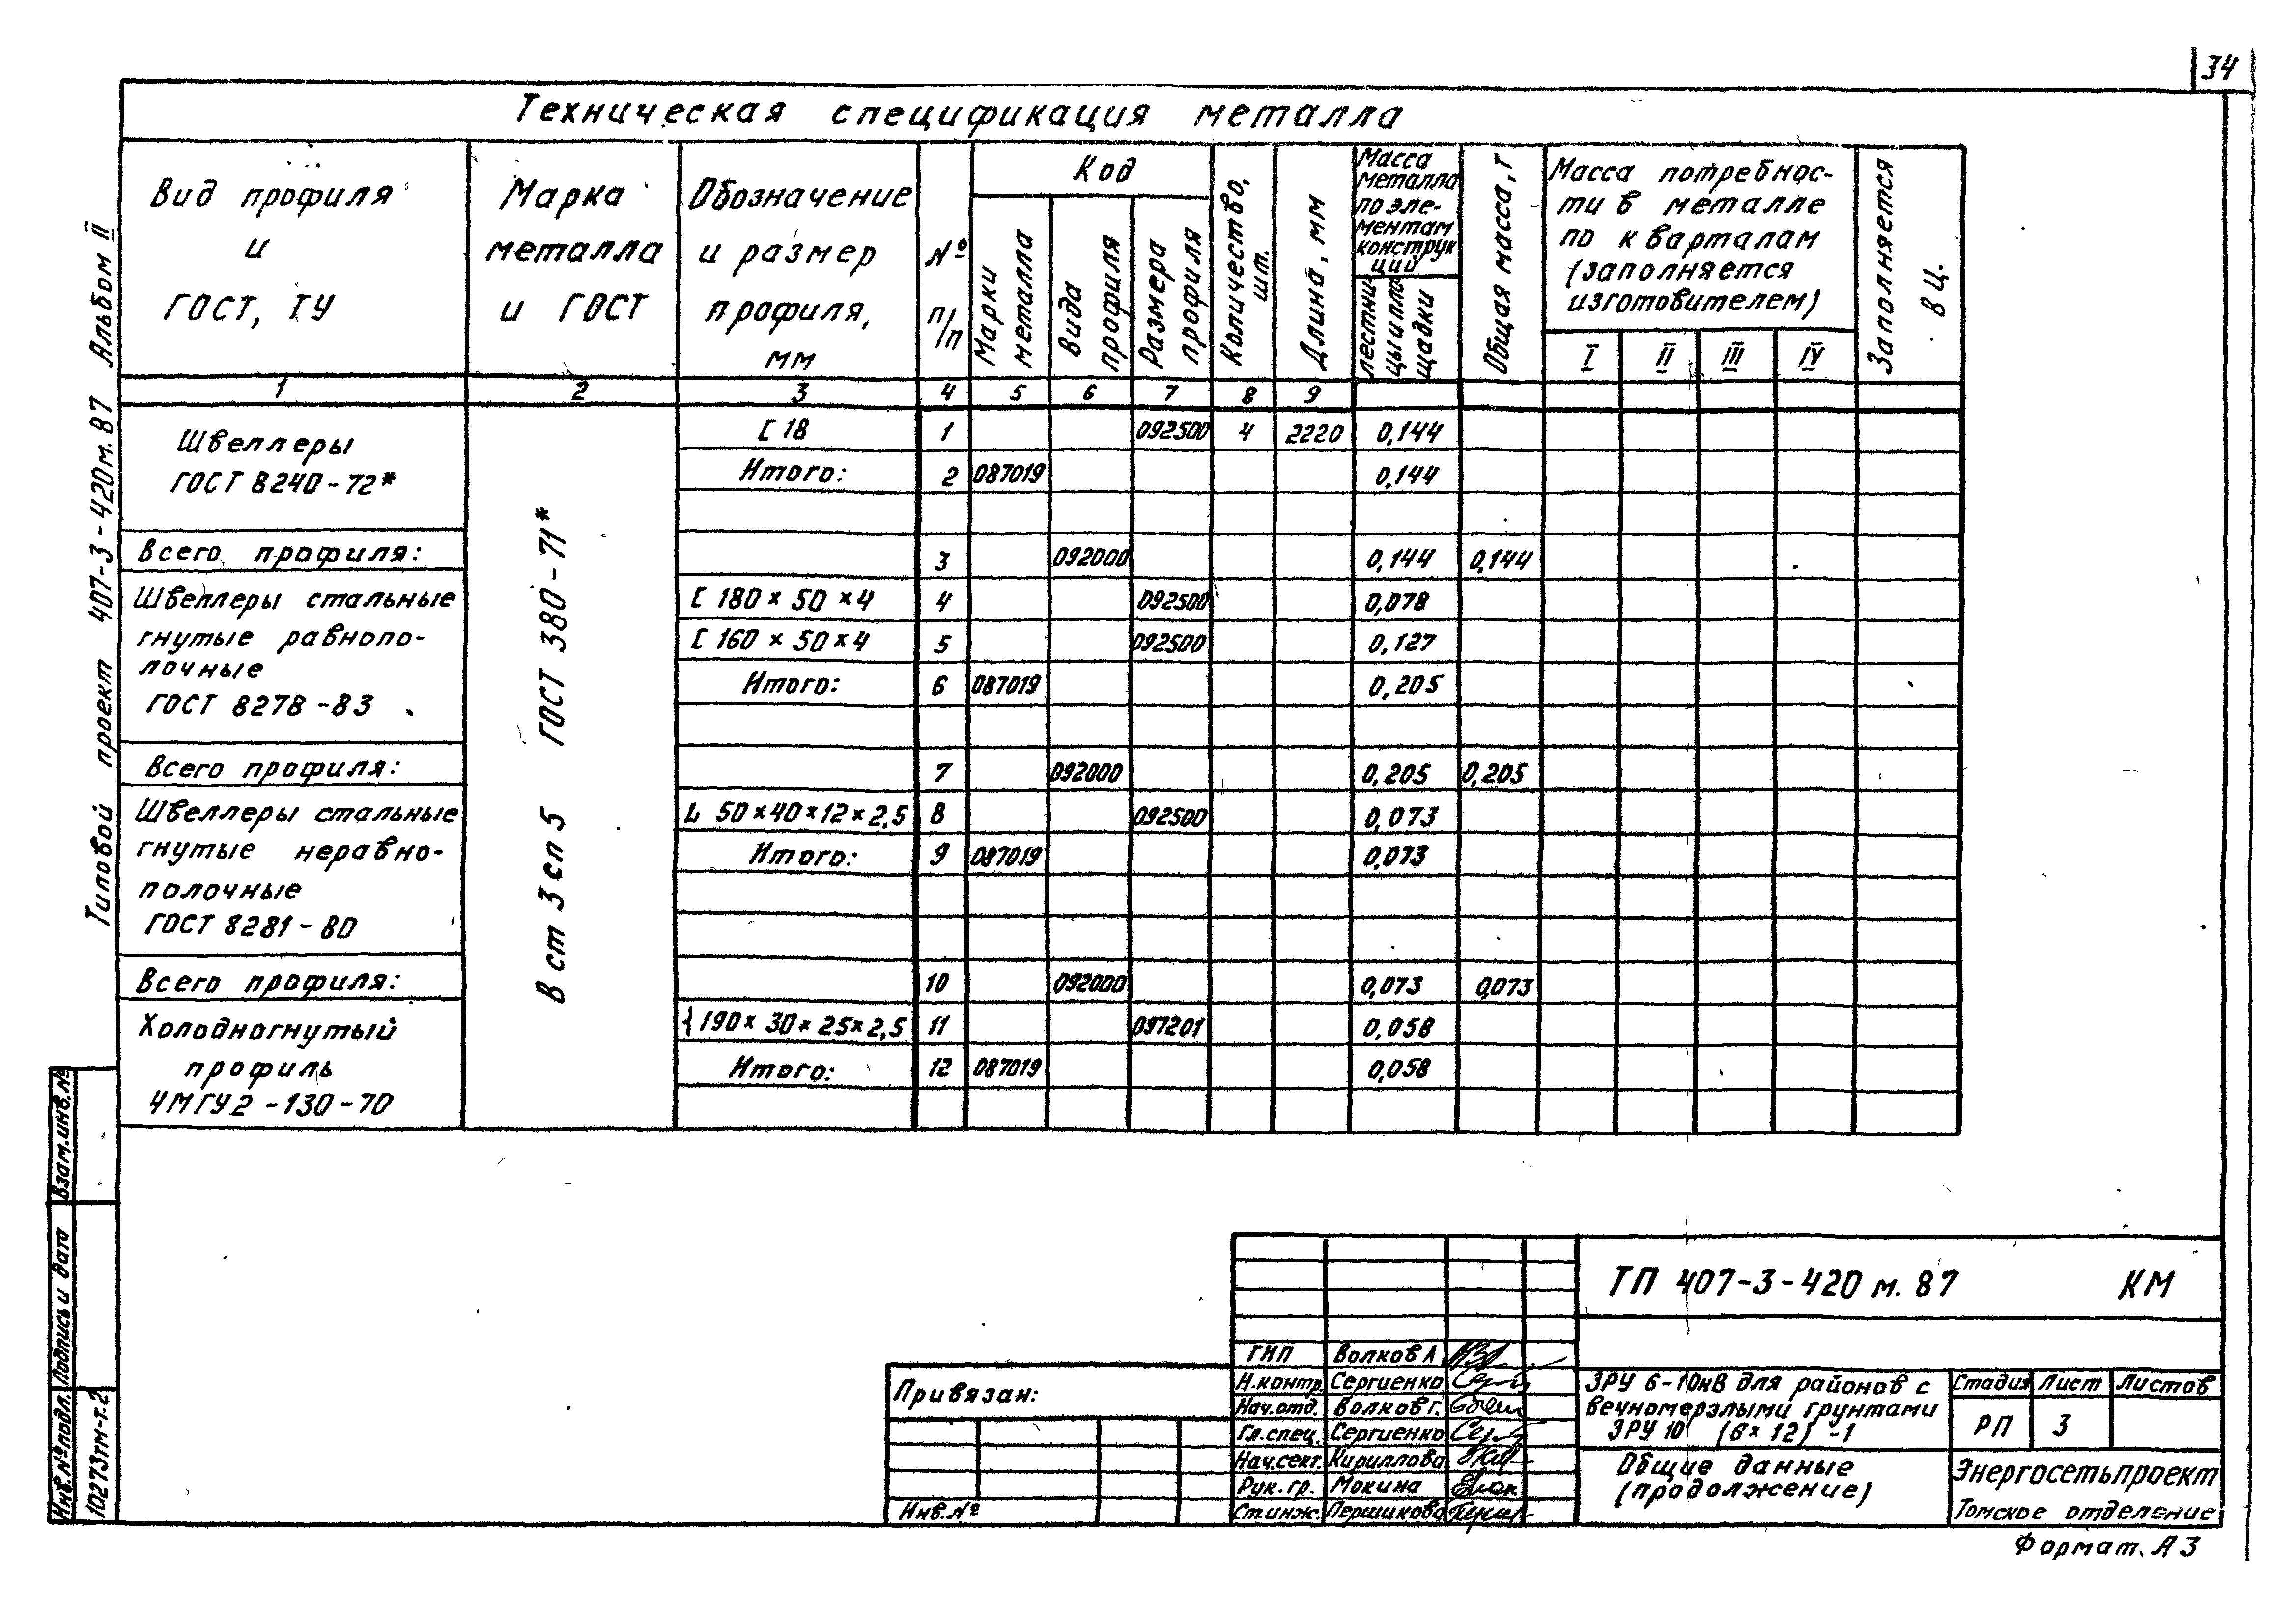 34
Техническая спецификация металла
Вид профиля
и
ГОСТ, ТУ
Марка
металла
и ГОСТ
Обозначение
и размер
профиля,
мм
№
п/п
Код
Марки металла
Вида профиля
Размера профиля
Количество, шт.
Длина, мм
Масса
металла
по эле-
ментам
конструк
ций
лестни
цы и пло
щадки
Общая масса, т
Масса потребнос-
ти в металле
по кварталам
(заполняется
изготовителем)
I II III IV
Заполняется
в Ц.
1 2 3 4 5 6 7 8 9
Швеллеры
ГОСТ 8240-72*
[ 18 1 092500 4 2220 0,144
Итого: 2 087019 0,144
Всего профиля: 3 092000 0,144 0,144
Швеллеры стальные
гнутые равнопо-
лочные
ГОСТ 8278-83
[ 180 × 50 × 4 4 092500 0,078
[ 160 × 50 × 4 5 092500 0,127
Итого: 6 087019 0,205
Всего профиля: 7 092000 0,205 0,205
Швеллеры стальные
гнутые неравно-
полочные
ГОСТ 8281-80
50×40×12×2,5 8 092500 0,073
Итого: 9 087019 0,073
Всего профиля: 10 092000 0,073 0,073
Холодногнутый
профиль
ЧМТУ2-130-70
190× 30× 25× 2,5 11 097201 0,058
Итого: 12 087019 0,058
В ст 3 сп 5 ГОСТ 380-71*
Типовой проект 407-3-420м.87 Альбом II
Взам.инв.№
Подпись и дата
Инв.№ подл.
10273тм-т.2
Привязан:
Инв.№
ТП 407-3-420 м. 87 КМ
ГИП Волков А
Н.контр. Сергиенко
Нач.отд. Волков Г.
Гл.спец. Сергиенко
Нач.сект. Кириллова
Рук.гр. Мокина
Ст.инж. Першикова
ЗРУ 6-10кВ для районов с
вечномерзлыми грунтами
ЗРУ 10 (6×12)-1
Стадия Лист Листов
РП 3
Общие данные
(продолжение)
Энергосетьпроект
Томское отделение
Формат. А3